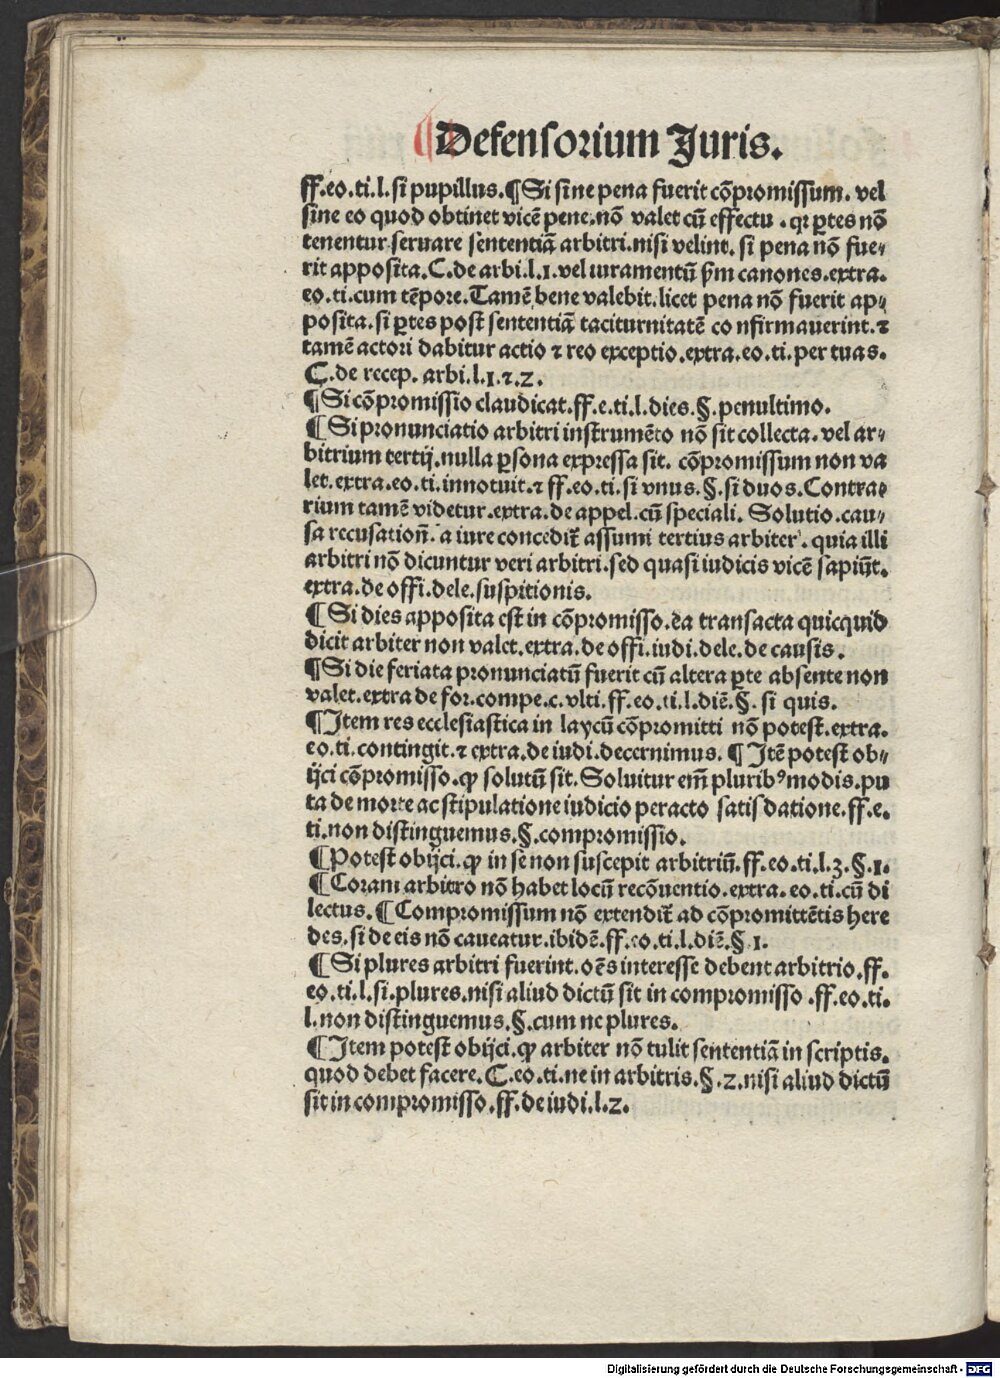 ¶Defensorium Juris.
ff.eo.ti.l.si pupillus.¶Si sine pena fuerit cõpromissum. vel
sine eo quod obtinet vicẽ pene.nõ valet cũ effectu .qꝛ ꝑtes nõ
tenentur seruare sententiã arbitri.nisi velint. si pena nõ fue⸗
rit apposita.C.de arbi.l.1.vel iuramentũ ẜm canones.extra.
eo.ti.cum tẽpore.Tamẽ bene valebit.licet pena nõ fuerit ap⸗
posita.si ꝑtes post sententiã taciturnitatẽ co nfirmauerint.⁊
tamẽ actori dabitur actio ⁊ reo exceptio.extra.eo.ti.per tuas.
C.de recep. arbi.l.1.⁊.2.
¶Si cõpromissio claudicat.ff.e.ti.l.dies.§.penultimo.
¶Si pronunciatio arbitri instrumẽto nõ sit collecta. vel ar⸗
bitrium tertij.nulla ꝑsona expressa sit. cõpromissum non va
let.extra.eo.ti.innotuit.⁊ ff.eo.ti.si vnus.§.si duos.Contra⸗
rium tamẽ videtur.extra.de appel.cũ speciali. Solutio.cau⸗
sa recusatioñ. a iure concedit᷑ assumi tertius arbiter. quia illi
arbitri nõ dicuntur veri arbitri.sed quasi iudicis vicẽ sapiũt.
extra.de offi.dele.suspitionis.
¶Si dies apposita est in cõpromisso.ea transacta quicquid
dicit arbiter non valet.extra.de offi.iudi.dele.de causis.
¶Si die feriata pronunciatũ fuerit cũ altera ꝑte absente non
valet.extra de for.compe.c.vlti.ff.eo.ti.l.diẽ.§. si quis.
¶Item res ecclesiastica in laycũ cõpromitti nõ potest.extra.
eo.ti.contingit.⁊ extra.de iudi.decernimus. ¶Itẽ potest ob⸗
ijci cõpromisso.ꝙ solutũ sit.Soluitur em̃ pluribꝰ modis.pu
ta de morte ac stipulatione iudicio peracto satisdatione.ff.e.
ti.non distinguemus.§.compromissio.
¶Potest obijci.ꝙ in se non suscepit arbitriũ.ff.eo.ti.l.3.§.1.
¶Coram arbitro nõ habet locũ recõuentio.extra. eo.ti.cũ di
lectus.¶Compromissum nõ extendit᷑ ad cõpromittẽtis here
des.si de eis nõ caueatur.ibidẽ.ff.eo.ti.l.diẽ.§ 1.
¶Si plures arbitri fuerint.oẽs interesse debent arbitrio.ff.
eo.ti.l.si.plures.nisi aliud dictũ sit in compromisso .ff.eo.ti.
l.non distinguemus.§.cum ne plures.
¶Item potest obijci.ꝙ arbiter nõ tulit sententiã in scriptis.
quod debet facere.C.eo.ti.ne in arbitris.§.2.nisi aliud dictũ
sit in compromisso.ff.de iudi.l.2.
Digitalisierung gefördert durch die Deutsche Forschungsgemeinschaft - DFG